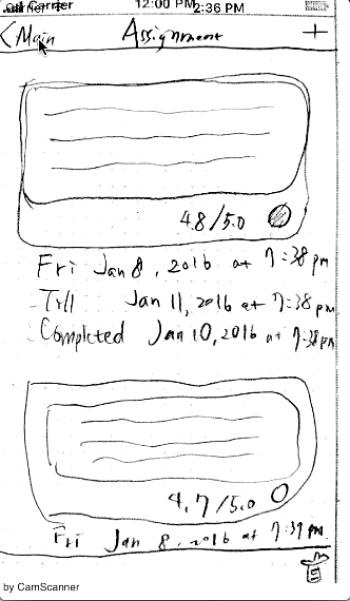 Carrier 12:00 PM 2:36 PM
< Main Assignment +
4.8/5.0
Fri Jan 8, 2016 at 7:38 pm
Till Jan 11, 2016 at 7:38 pm
Completed Jan 10, 2016 at 7:38 pm
4.7/5.0
Fri Jan 8, 2016 at 7:39 pm
by CamScanner